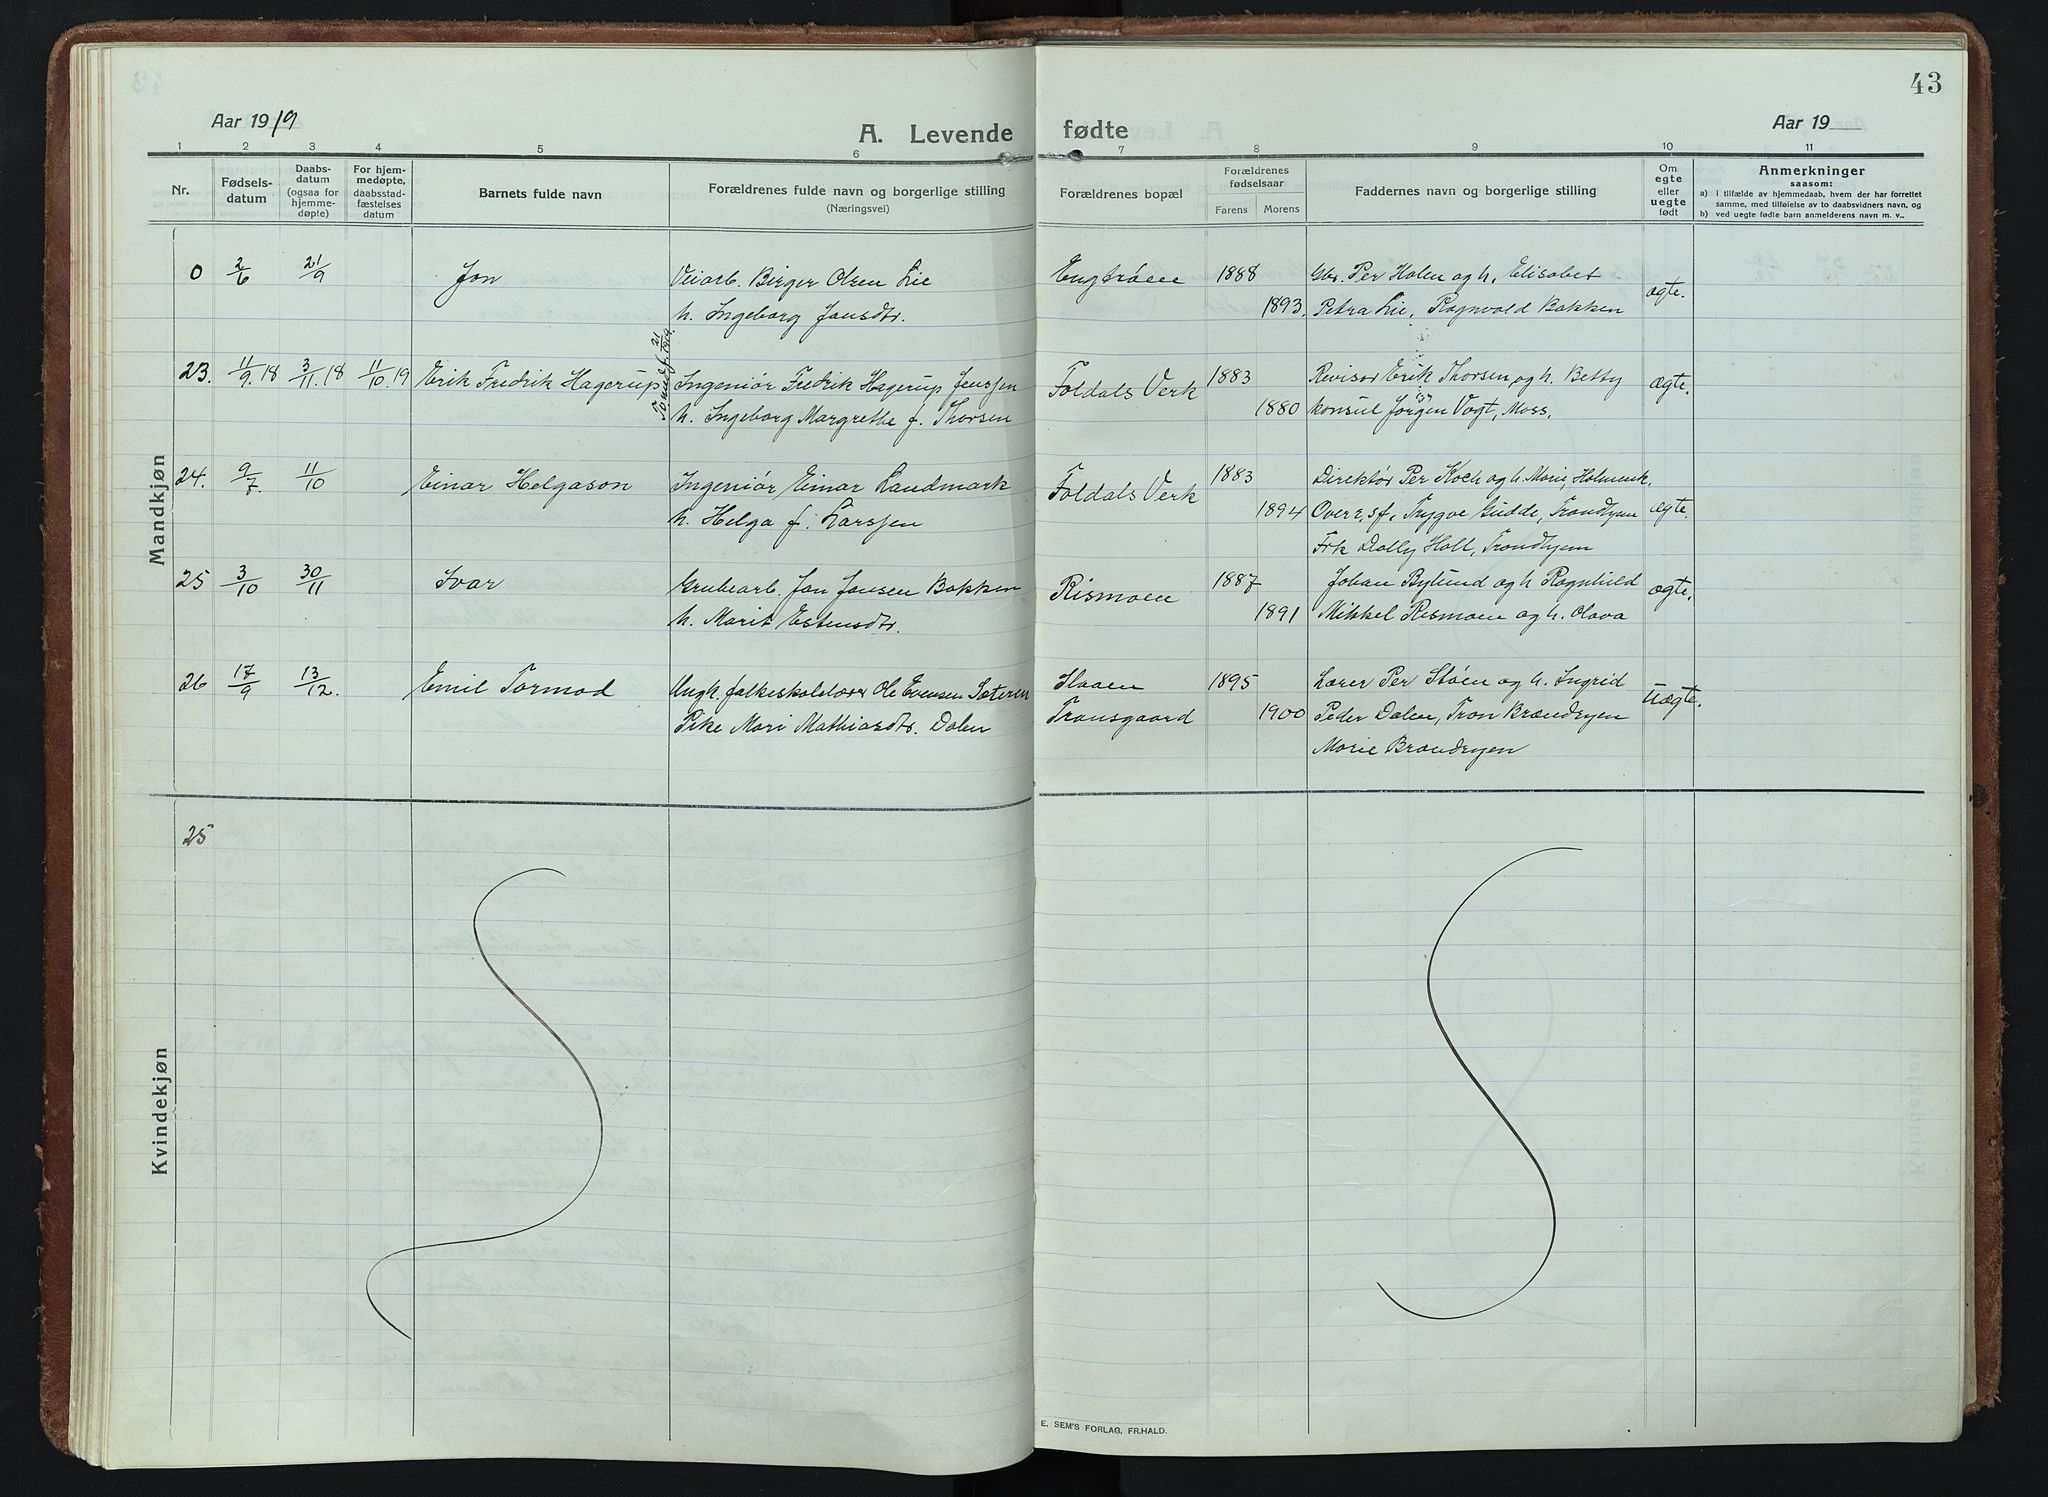 43
Aar 1919
A. Levende fødte
Aar 19
1 2 3 4 5 6 7 8 9 10 11
Nr.
Fødsels-
datum
Daabs-
datum
(ogsaa for
hjemme-
døpte)
For hjem-
medøpte,
daabsstad-
fæstelses
datum
Barnets fulde navn
Forældrenes fulde navn og borgerlige stilling
(Næringsvei)
Forældrenes bopæl
Forældrenes
fødselsaar
Farens Morens
Faddernes navn og borgerlige stilling
Om
egte
eller
uegte
født
Anmerkninger
saasom:
a) i tilfælde av hjemmedaab, hvem der har forrettet
samme, med tilføielse av to daabsvidners navn, og
b) ved uegte fødte barn anmelderens navn m. v..
Mandkjøn
0 2/6 21/9 Jon Veiarb. Birger Olsen Lie Engtrøen 1888 Gbr. Per Holen og h. Elisabet ægte.
h. Ingeborg Jonsdtr. 1893. Petra Lie, Ragnvald Bakken
23. 11/9.18 3/11.18 11/10 19 Erik Fredrik Hagerup Ingeniør Fredrik Hagerup Jenssen Foldals Verk 1883 Revisor Erik Thorsen og h. Betty ægte.
h. Ingeborg Margrethe f. Thorsen 1880 konsul Jørgen Vogt, Moss.
24. 9/7. 11/10 Einar Helgason Ingeniør Einar Landmark Foldals Verk 1883 Direktør Per Koch og h. Marie, Holmenk.
h. Helga f. Larssen 1894 Overr.sf. Trygve Gudde, Trondhjem ægte.
Frk Dolly Holt, Trondhjem
25 3/10 30/11 Ivar Grubearb. Jon Jonsen Bakken Rismoen 1887 Johan Bylund og h Ragnhild ægte.
h. Marit Estensdtr. 1891 Mikkel Rismoen og h. Olava
26 17/9 13/12. Emil Tormod Ungk. folkeskolelærer Ole Evensen Sæteren 1895 Lærer Per Støen og h. Ingrid uægte.
Pike Mari Mathiasdtr. Dalen Tronsgaard 1900 Peder Dalen, Tron Brændryen
Marie Brændryen
Kvindekjøn
25
E. SEM'S FORLAG, FR.HALD.